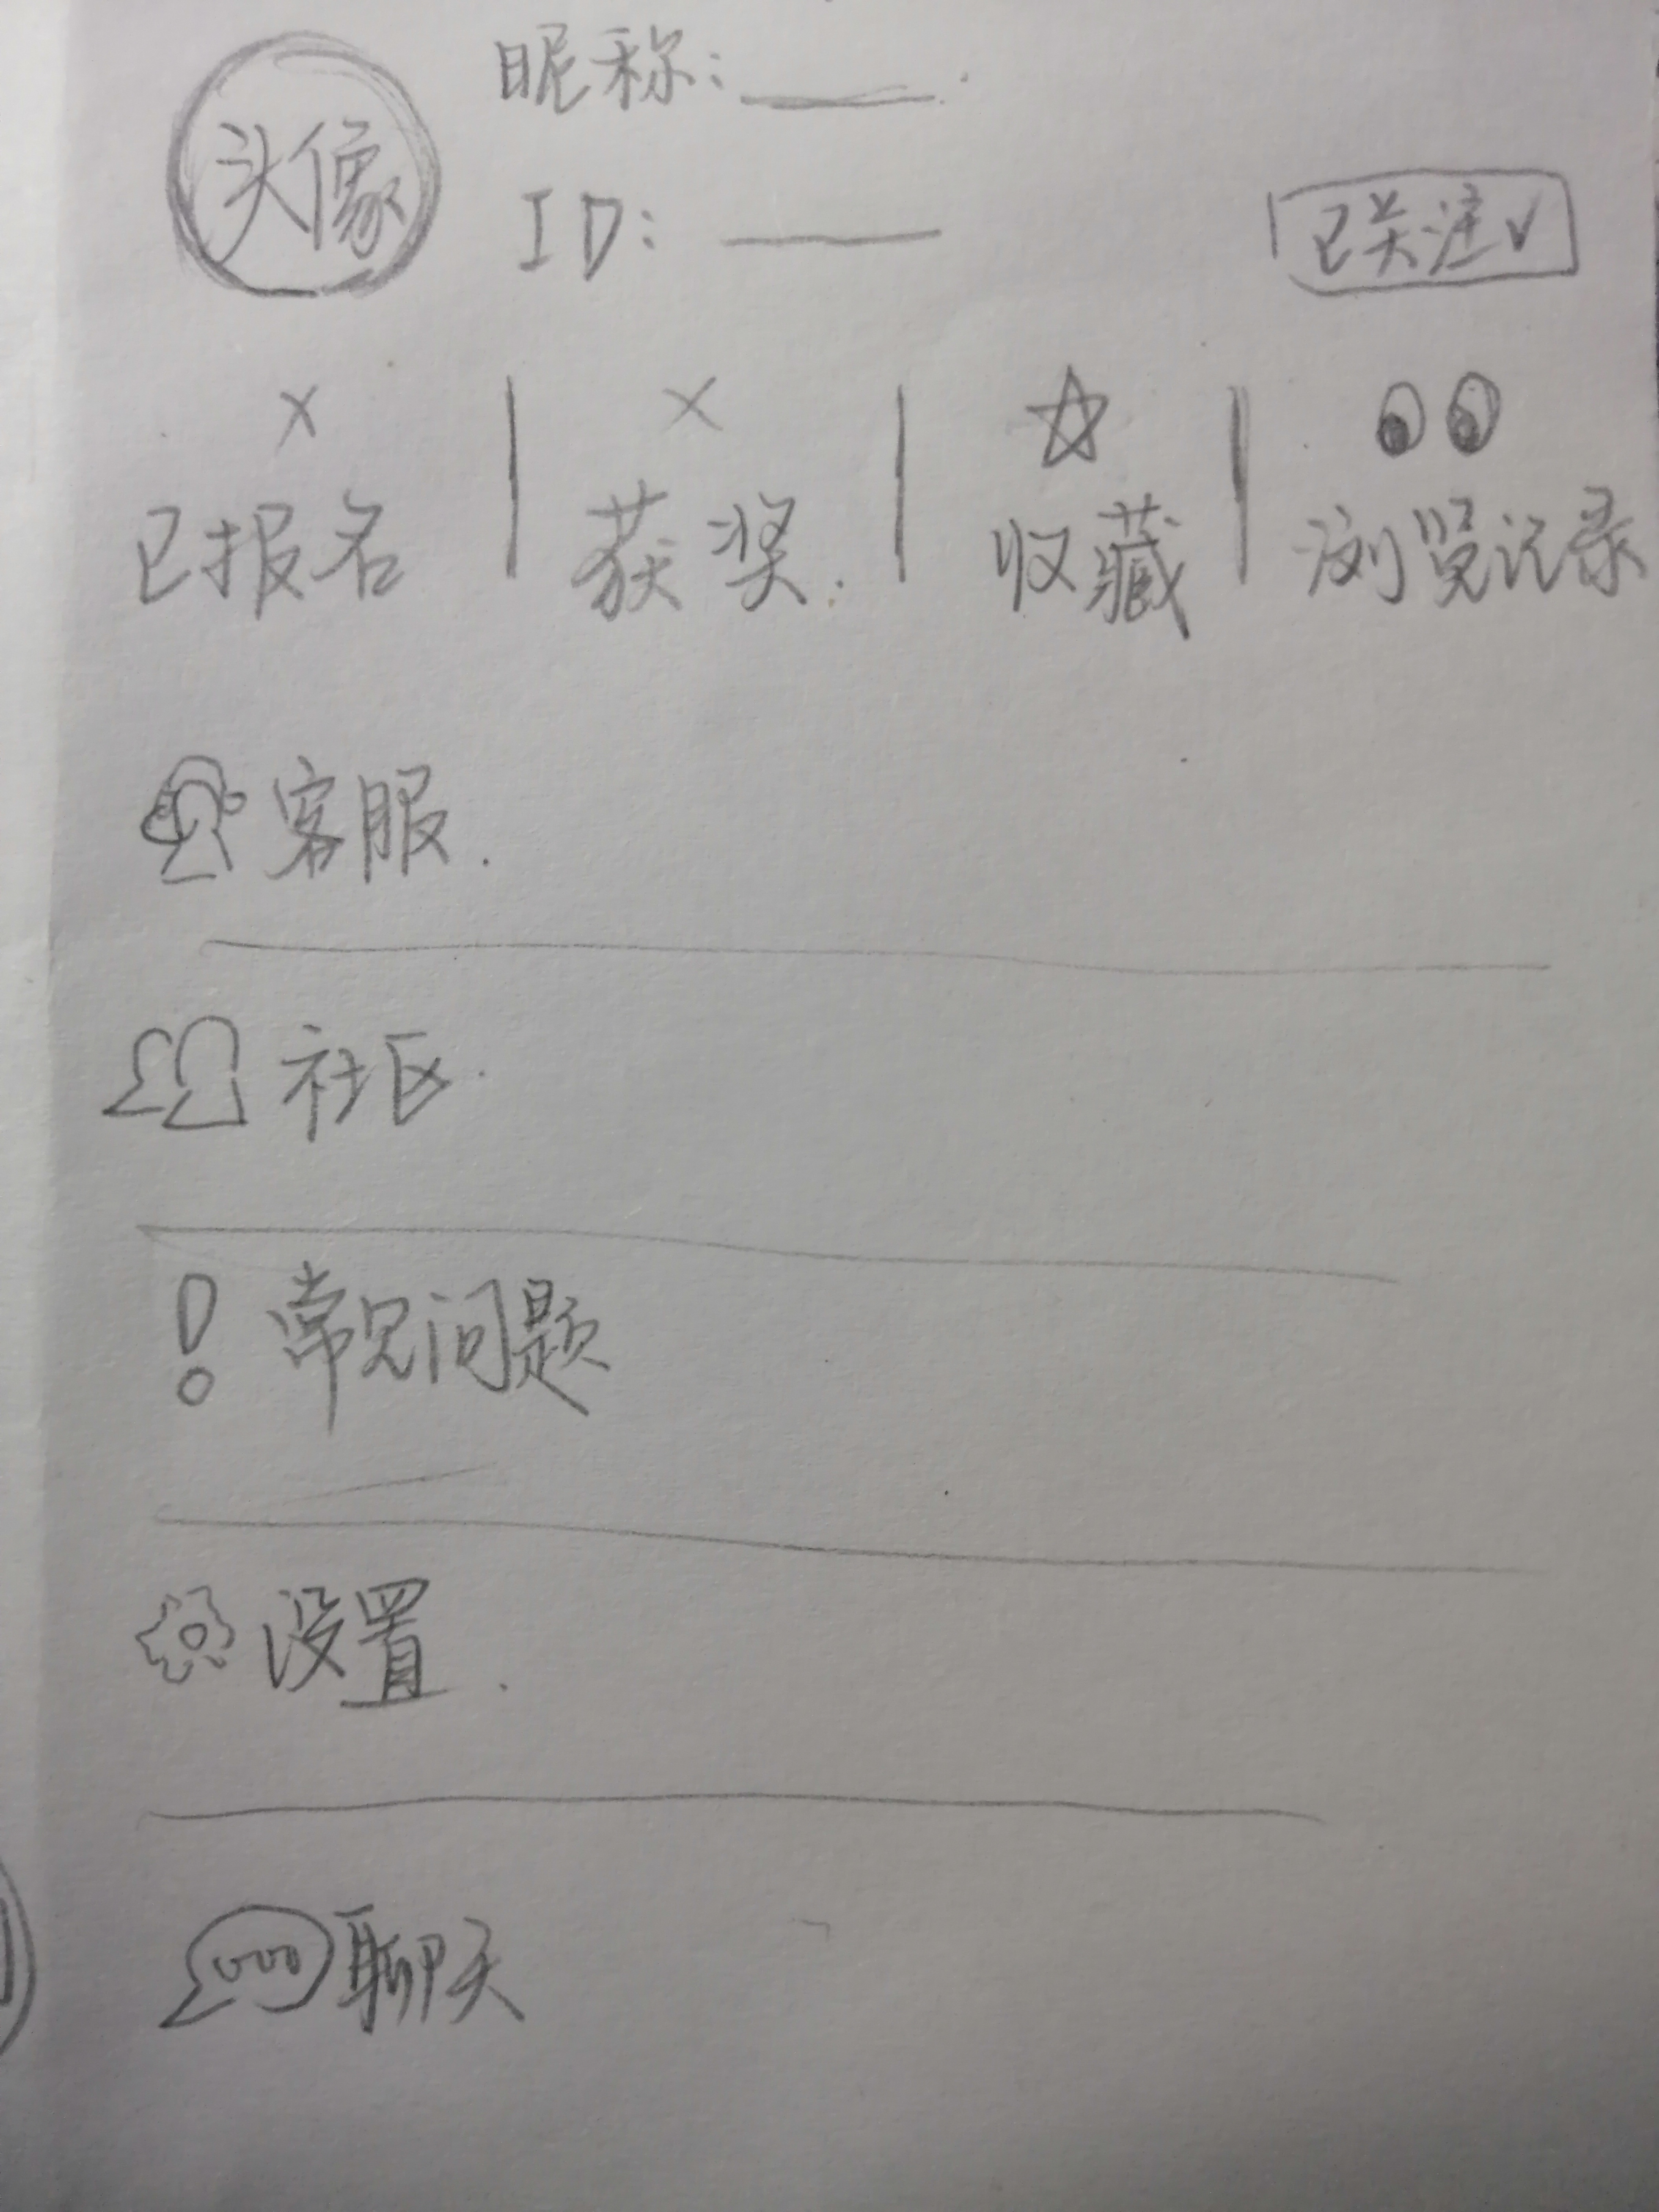 头像
昵称：____
ID：____
已关注✓
× × ☆
已报名 获奖 收藏 浏览记录
客服
社区
! 常见问题
设置
聊天